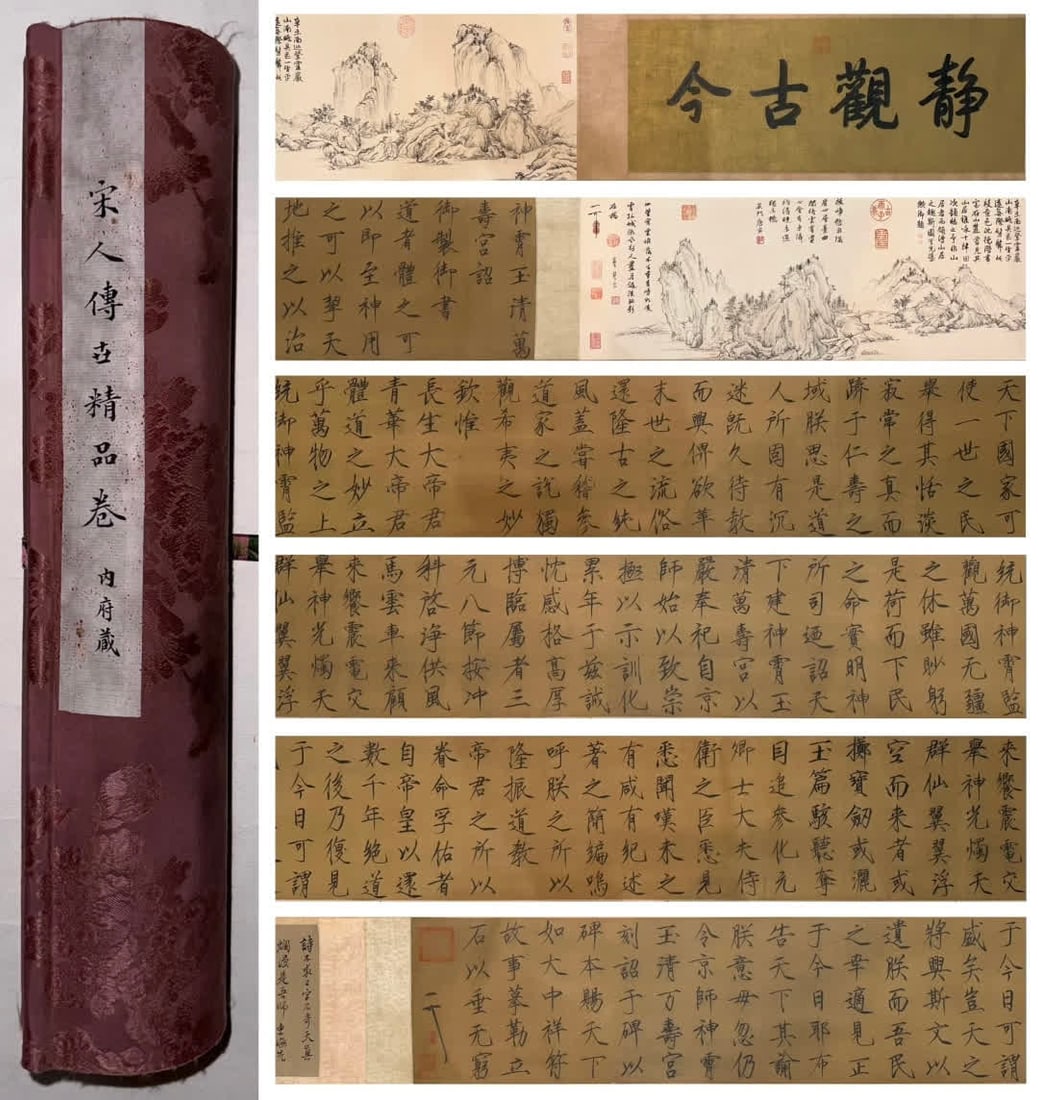 宋人傳世精品卷 内府藏
静觀古今
神霄玉清萬
壽宮詔
御製御書
道者體之可
以即至神用
之可以挈天
地推之以治
天下國家可
使一世之民
舉得其恬淡
寂常之真而
躋于仁壽之
域朕思是道
人所固有沉
迷既久待教
而興俾欲革
末世之流俗
還隆古之純
風蓋嘗稽參
道家之說獨
觀希夷之妙
欽惟
長生大帝君
青華大帝君
體道之妙立
乎萬物之上
統御神霄監
統御神霄監
觀萬國无疆
之休雖眇躬
是荷而下民
之命實明神
所司迺詔天
下建神霄玉
清萬壽宮以
嚴奉祀自京
師始以致崇
極以示訓化
累年于兹誠
忱感格高厚
博臨屬者三
元八節按沖
科啓海供風
馬雲車來顧
來饗震電交
舉神光燭天
群仙翼翼浮
來饗震電交
舉神光燭天
群仙翼翼浮
空而来者或
擲寶劒或灑
玉篇駭聽奪
目追參化元
卿士大夫侍
衛之臣悉見
悉聞嘆未之
有咸有紀述
著之簡編嗚
呼朕之所以
隆振道教
帝君之所以
眷命孚佑者
自帝皇以還
數千年絕道
之後乃復見
于今日可謂
于今日可謂
盛矣豈天之
將興斯文以
遺朕而吾民
之幸適見正
于今日耶布
告天下其諭
朕意毋忽仍
令京師神霄
玉清万壽宮
刻詔于碑以
碑本賜天下
如大中祥符
故事摹勒立
石以垂无窮